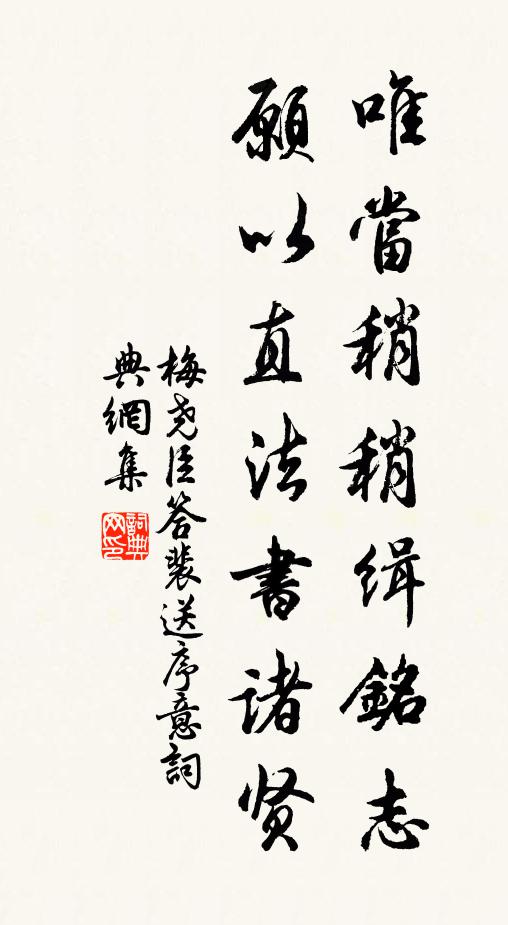 唯當稍稍缉銘志
願以直法書诸贤
梅尧臣答裴送序意詞
典網集
詞典网印